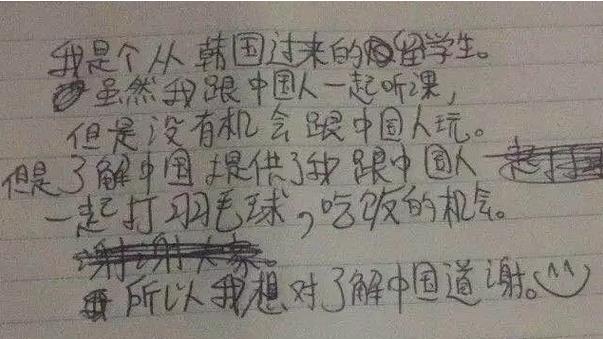 我是个从韩国过来的留学生。
虽然我跟中国人一起听课，
但是没有机会跟中国人玩。
但是了解中国提供了我跟中国人
一起打羽毛球，吃饭的机会。
谢谢大家。
所以我想对了解中国道谢。^^